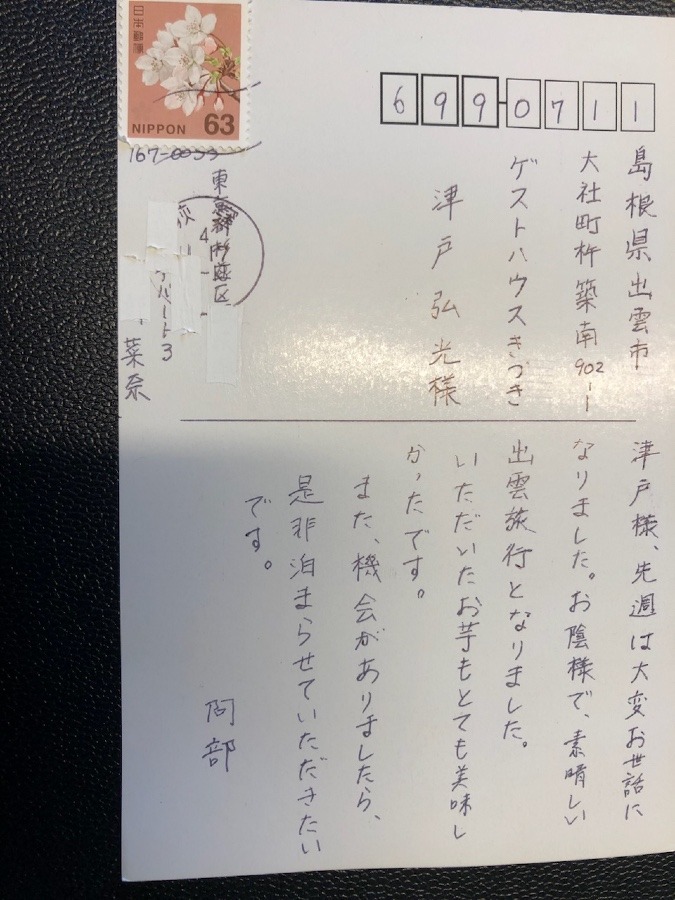 日本郵便
NIPPON 63
699-0711
島根県出雲市
大社町杵築南902-1
ゲストハウスきづき
津戸弘光様
東京都杉並区
パート3
菜奈
津戸様、先週は大変お世話に
なりました。お陰様で、素晴しい
出雲旅行となりました。
いただいたお芋もとても美味し
かったです。
また、機会がありましたら、
是非泊まらせていただきたい
です。
阿部